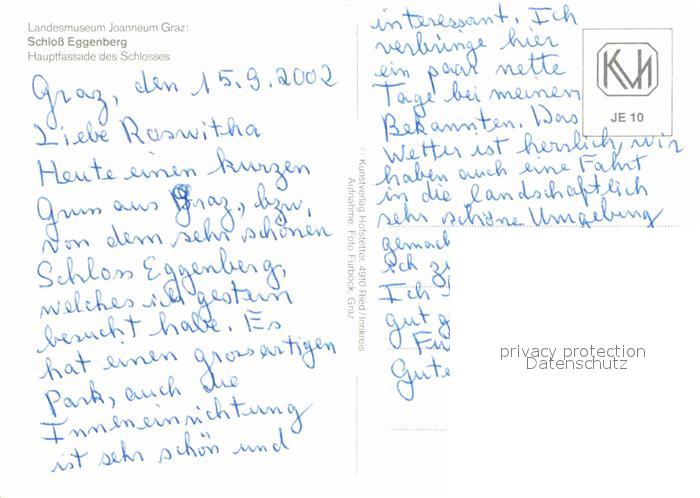 Landesmuseum Joanneum Graz:
Schloß Eggenberg
Hauptfassade des Schlosses
Graz, den 15.9.2002
Liebe Roswitha
Heute einen kurzen
Gruss aus Graz, bzw.
von dem sehr schönen
Schloss Eggenberg,
welches ich gestern
besucht habe. Es
hat einen grossartigen
Park, auch die
Inneneinrichtung
ist sehr schön und
interessant. Ich
verbringe hier
ein paar nette
Tage bei meinen
Bekannten. Das
Wetter ist herrlich, wir
haben auch eine Fahrt
in die landschaftlich
sehr schöne Umgebung
gemach
ich
Ich
gut
Gute
© Kunstverlag Hofstetter, 4910 Ried/Innkreis
Aufnahme: Foto Furböck, Graz
KVH
JE 10
privacy protection
Datenschutz